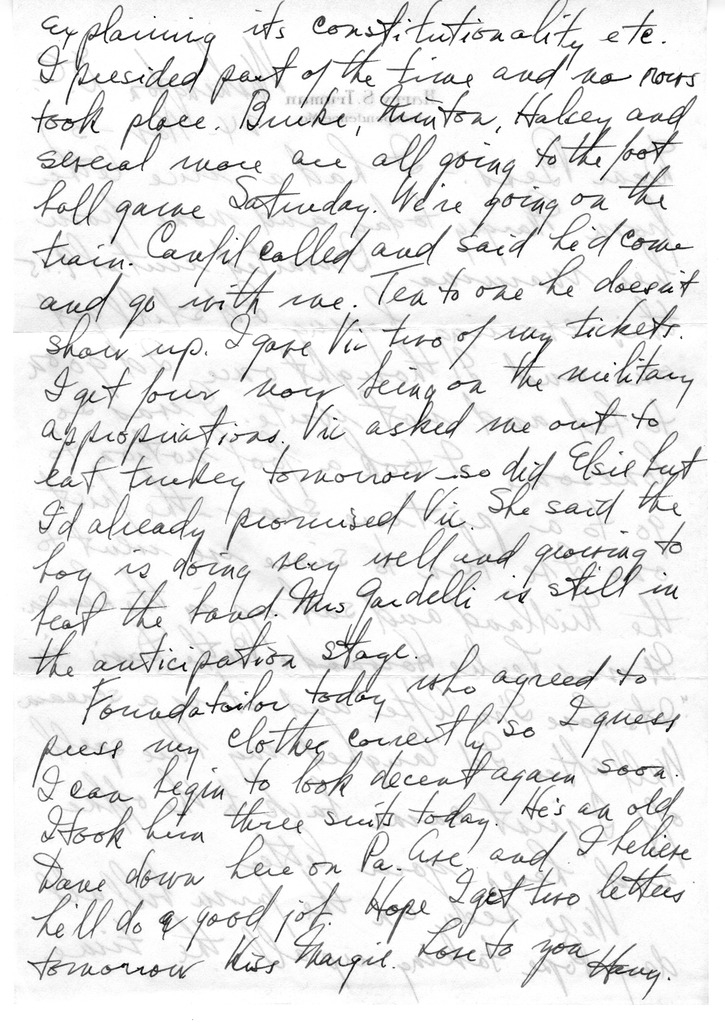 explaining its constitutionality etc.
I presided part of the time and no rows
took place. Burke, Minton, Halsey and
several more are all going to the foot
ball game Saturday. We're going on the
train. Canfil called and said he'd come
and go with me. Ten to one he doesn't
show up. I gave Vic two of my tickets.
I get four now being on the military
appropriations. Vic asked me out to
eat turkey tomorrow - so did Elsie but
I'd already promised Vic. She said the
boy is doing very well and growing to
beat the band. Mrs Gardelli is still in
the anticipation stage.
Found a tailor today who agreed to
press my clothes correctly so I guess
I can begin to look decent again soon.
I took him three suits today. He's an old
Dane down here on Pa. Ave and I believe
he'll do a good job. Hope I get two letters
tomorrow Kiss Margie. Love to you Harry.
Harry S. Truman